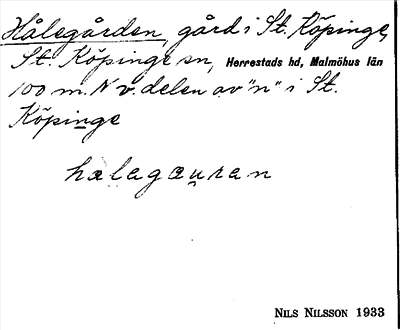 Hålegården, gård i St. Köpinge,
St. Köpinge sn, Herrestads hd, Malmöhus län
100 m. N v. delen av "n" i St.
Köpinge
halegæu̯ran
NILS NILSSON 1933